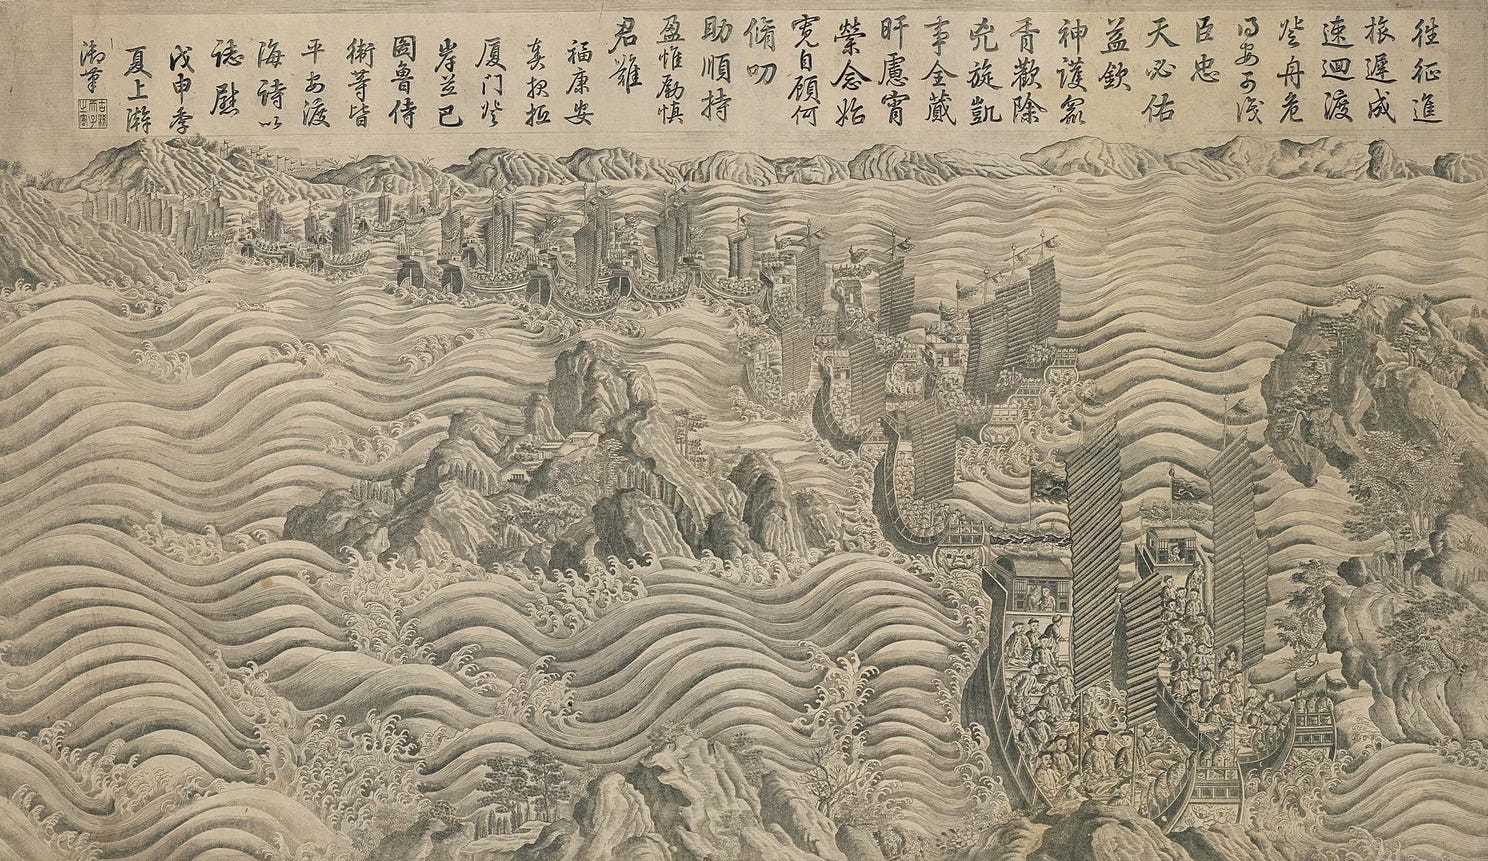 往征進
旅遲成
速迴渡
登舟危
得安可識
臣忠
天必佑
益欽
神護衆
胥歡除
兇旋凱
事全蕆
旰慮宵
縈念始
寬自顧何
脩叨
助順持
盈惟勵慎
君難
福康安
奏報抵
厦门登
岸並巴
圖魯侍
衛等皆
平安渡
海詩以
誌慰
戊申季
夏上澣
御筆
古稀天子之寶